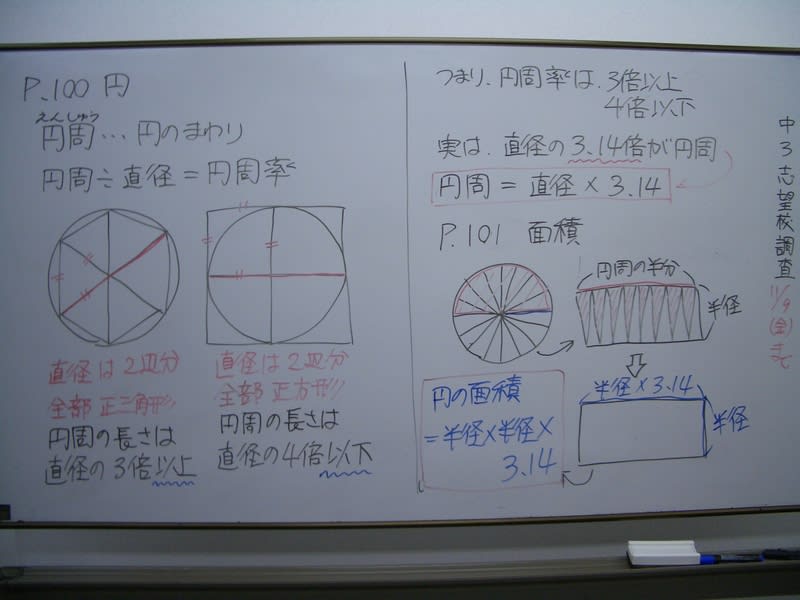 P.100 円
えんしゅう
円周…円のまわり
円周÷直径=円周率
直径は2皿分
全部正三角形
円周の長さは
直径の3倍以上
直径は2皿分
全部正方形
円周の長さは
直径の4倍以下
つまり、円周率は、3倍以上
4倍以下
実は、直径の3.14倍が円周
円周=直径×3.14
P.101 面積
円周の半分
半径
半径×3.14
半径
円の面積
=半径×半径×
3.14
中3志望校調査
11/9(金)まで